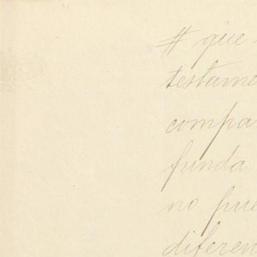 # que
testame
compa
funda
no pue
diferen